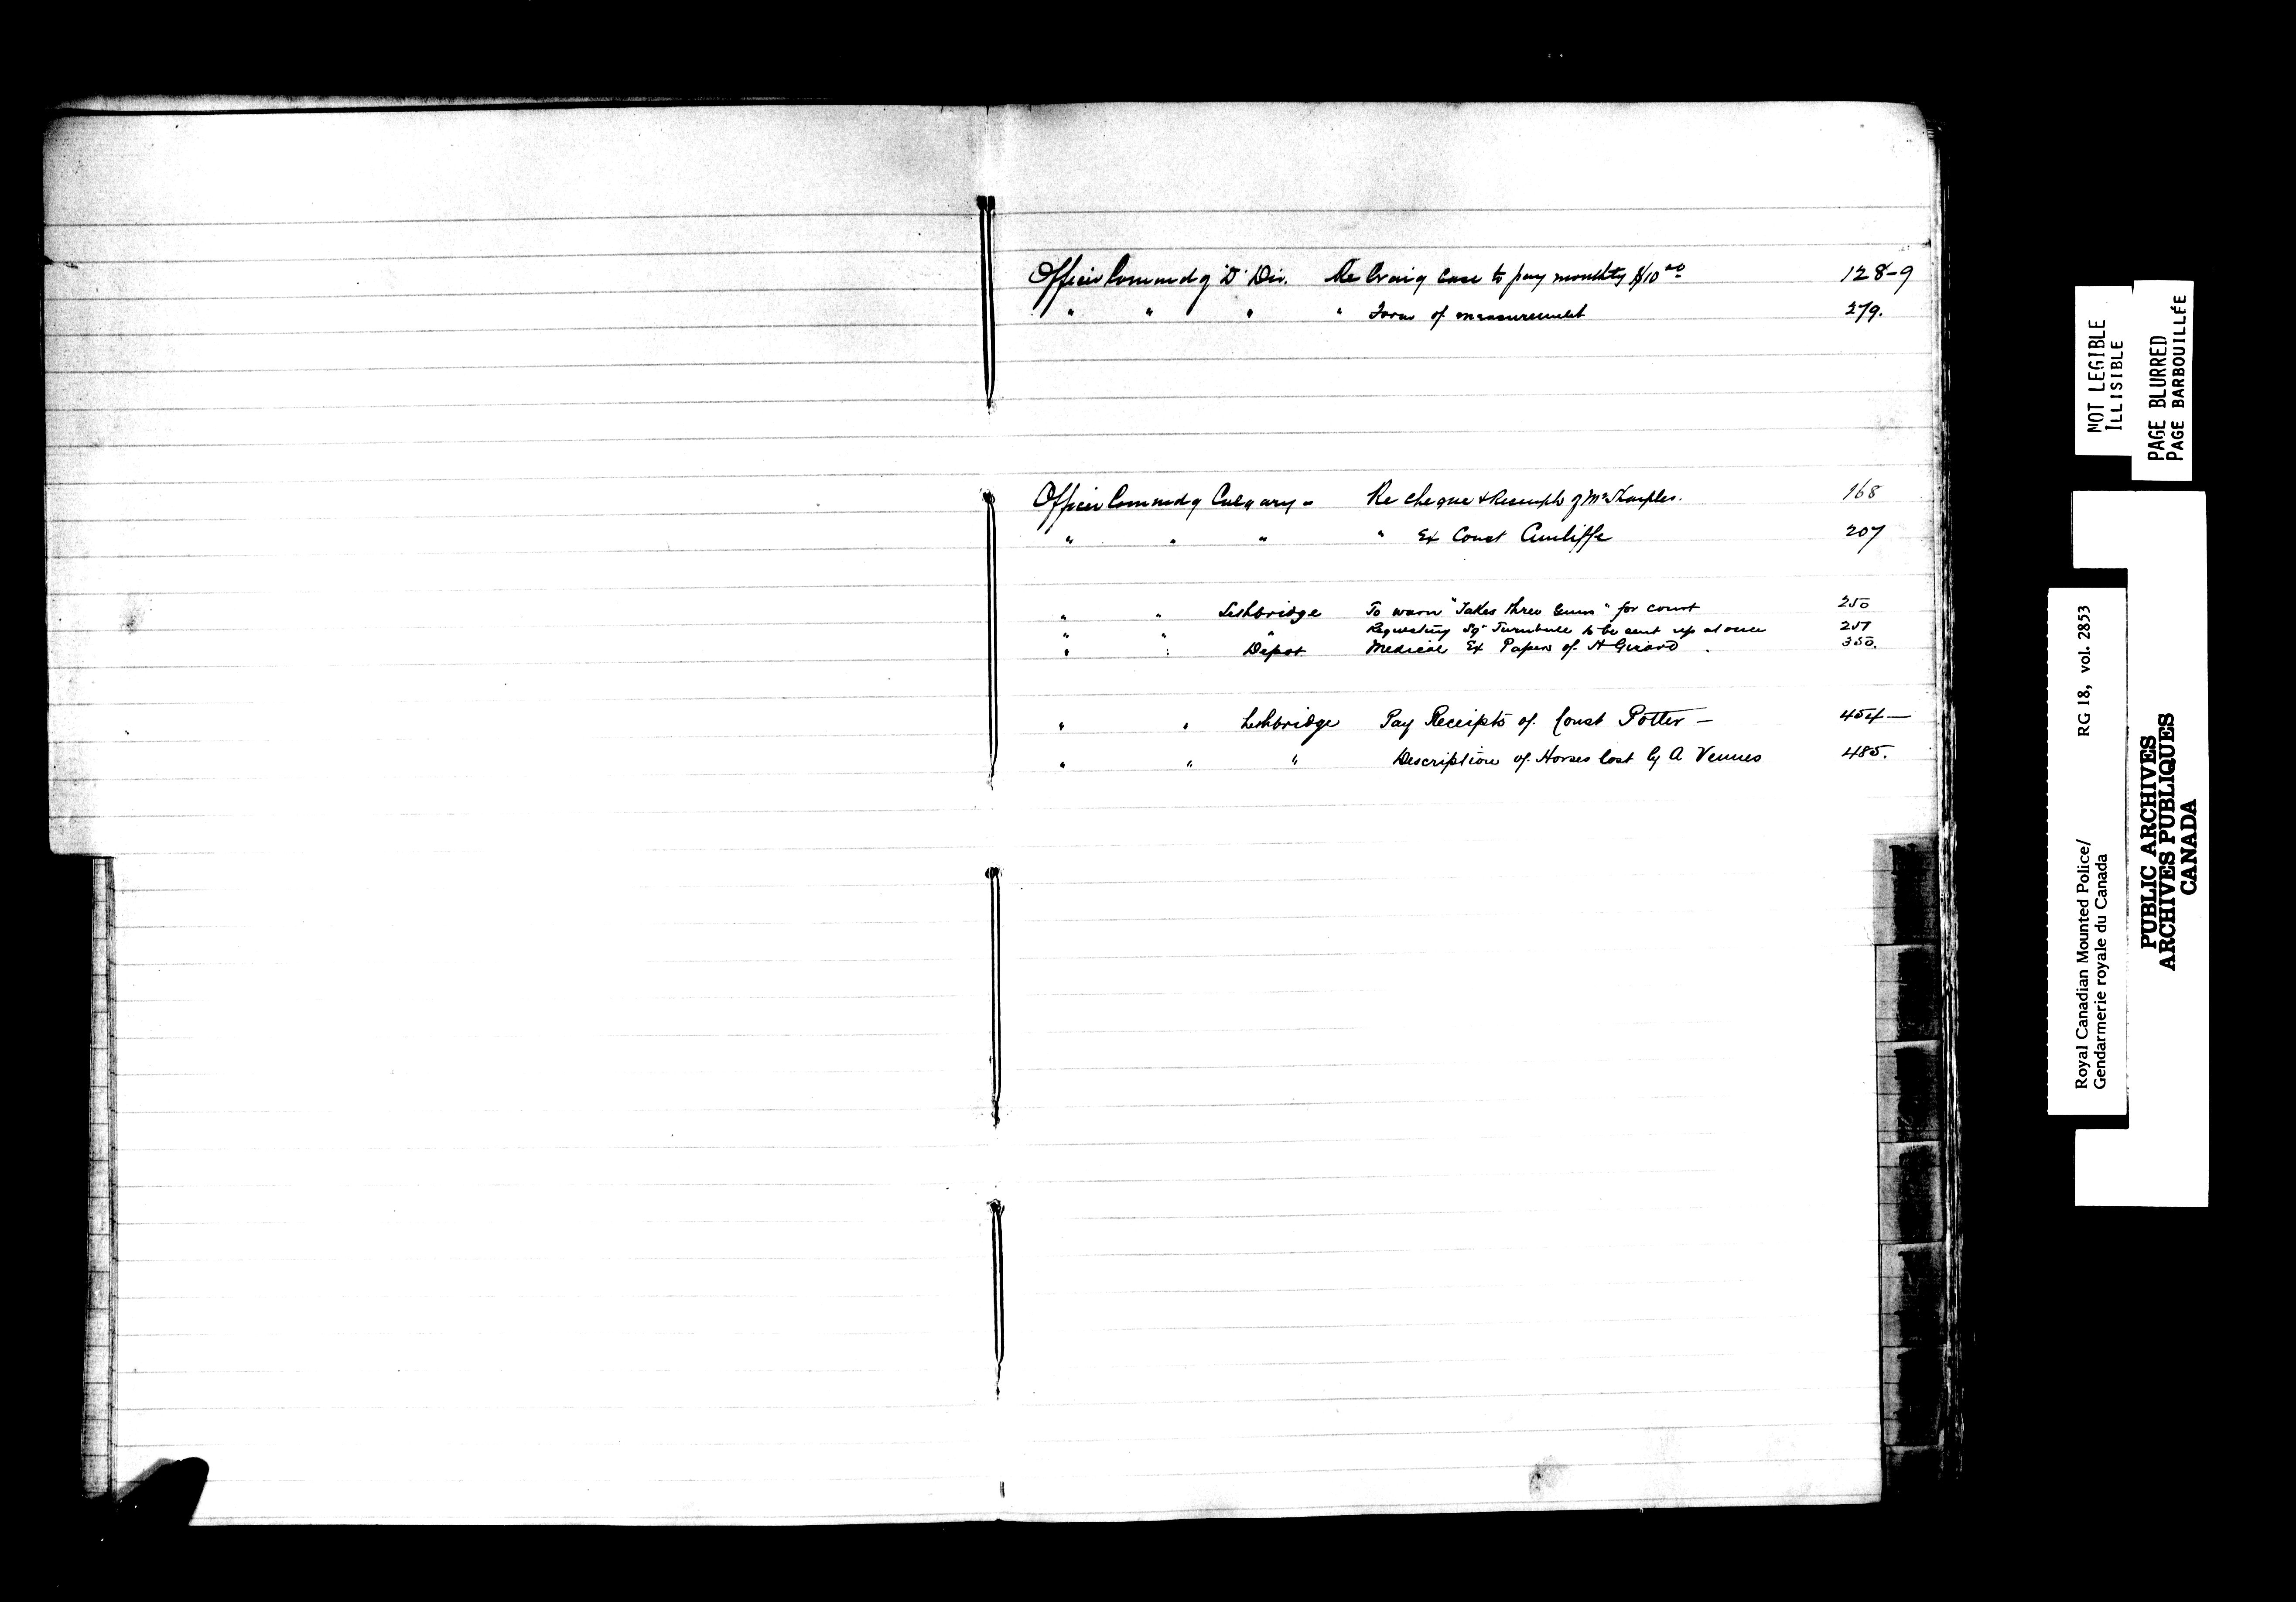 Officer Commdg "D" Div. Re Craig case to pay monthly $10 00 128-9
" " " " Form of measurement 279.
Officer Commdg Calgary - Re cheque & Receipt of Mrs 168
" " " " Ex Const Cunliffe 207
" " Lethbridge To warn "Takes three Guns" for court 250
" " " Requesting Sgt Turnbull to be sent up at once 257
" " Depot Medical Ex Papers of H Girard 350.
" " Lethbridge Pay Receipts of Const Potter - 454 -
" " " Description of Horses lost by A Vennes 485.
NOT LEGIBLE
ILLISIBLE
PAGE BLURRED
PAGE BARBOUILLÉE
RG 18, vol. 2853
Royal Canadian Mounted Police/
Gendarmerie royale du Canada
PUBLIC ARCHIVES
ARCHIVES PUBLIQUES
CANADA